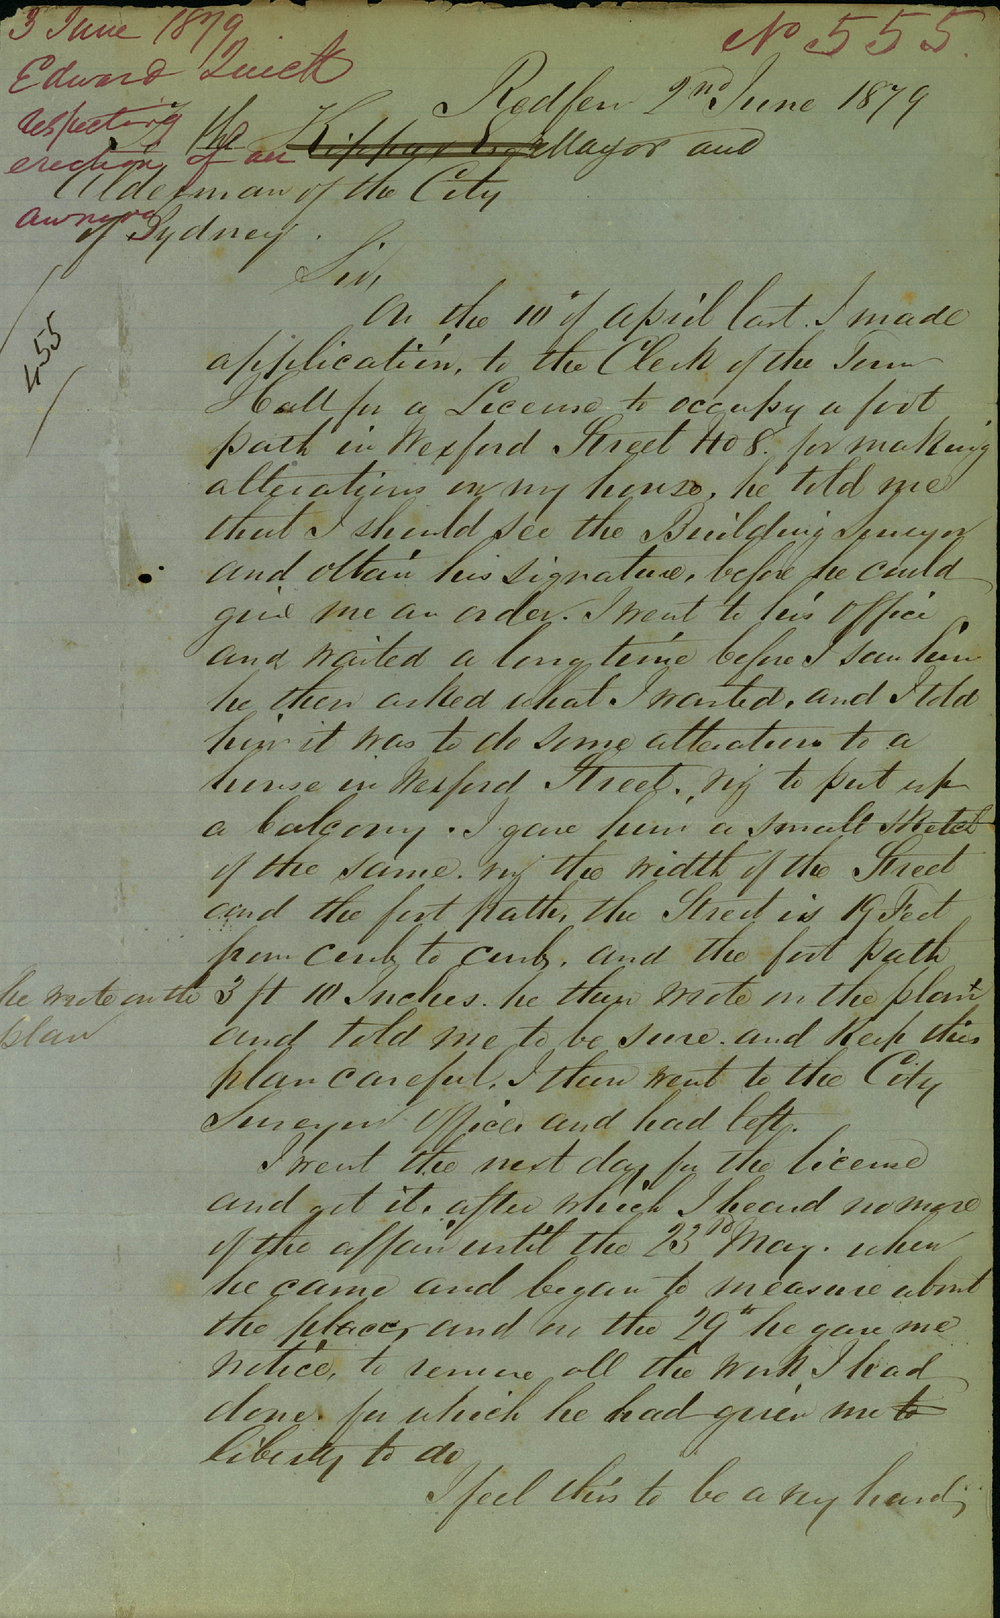 3 June 1879
No 555.
Edward Quick
respecting
erection of an
awning
Redfern 2nd June 1879
To the Kippax Esqr Mayor and
Alderman of the City
of Sydney.
455
Sir,
On the 10th of April last. I made
application, to the Clerk of the Town
Hall for a License to occupy a foot
path in Wexford Street No 8. for making
alterations on my house, he told me
that I should see the Building Surveyor
and obtain his signature, before he could
give me an order. I went to his office
and waited a long time before I saw him
he then asked what I wanted, and I told
him it was to do some alterations to a
house in Wexford Street. viz to put up
a balcony. I gave him a small sketch
of the same. viz the width of the Street
and the foot path, the Street is 19 Feet
from curb to curb, and the foot path
3 ft 10 Inches. he then wrote on the plan
he wrote on the
plan
and told me to be sure. and Keep this
plan careful, I then went to the City
Surveyor Office, and had left.
I went the next day for the license
and got it, after which I heard no more
of the affair until the 23rd May. when
he came and began to measure about
the place, and on the 29th he gave me
notice, to remove all the work I had
done. for which he had given me to
liberty to do
I feel this to be a very hard